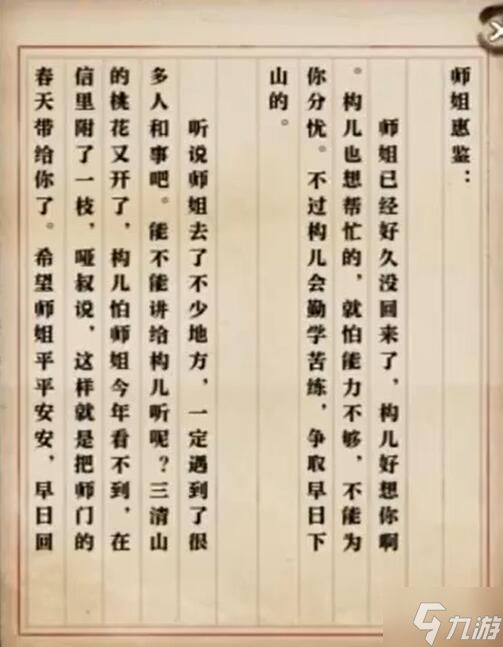 师姐惠鉴：
师姐已经好久没回来了，构儿好想你啊
。构儿也想帮忙的，就怕能力不够，不能为
你分忧。不过构儿会勤学苦练，争取早日下
山的。
听说师姐去了不少地方，一定遇到了很
多人和事吧。能不能讲给构儿听呢？三清山
的桃花又开了，构儿怕师姐今年看不到，在
信里附了一枝，哑叔说，这样就是把师门的
春天带给你了。希望师姐平平安安，早日回
九游